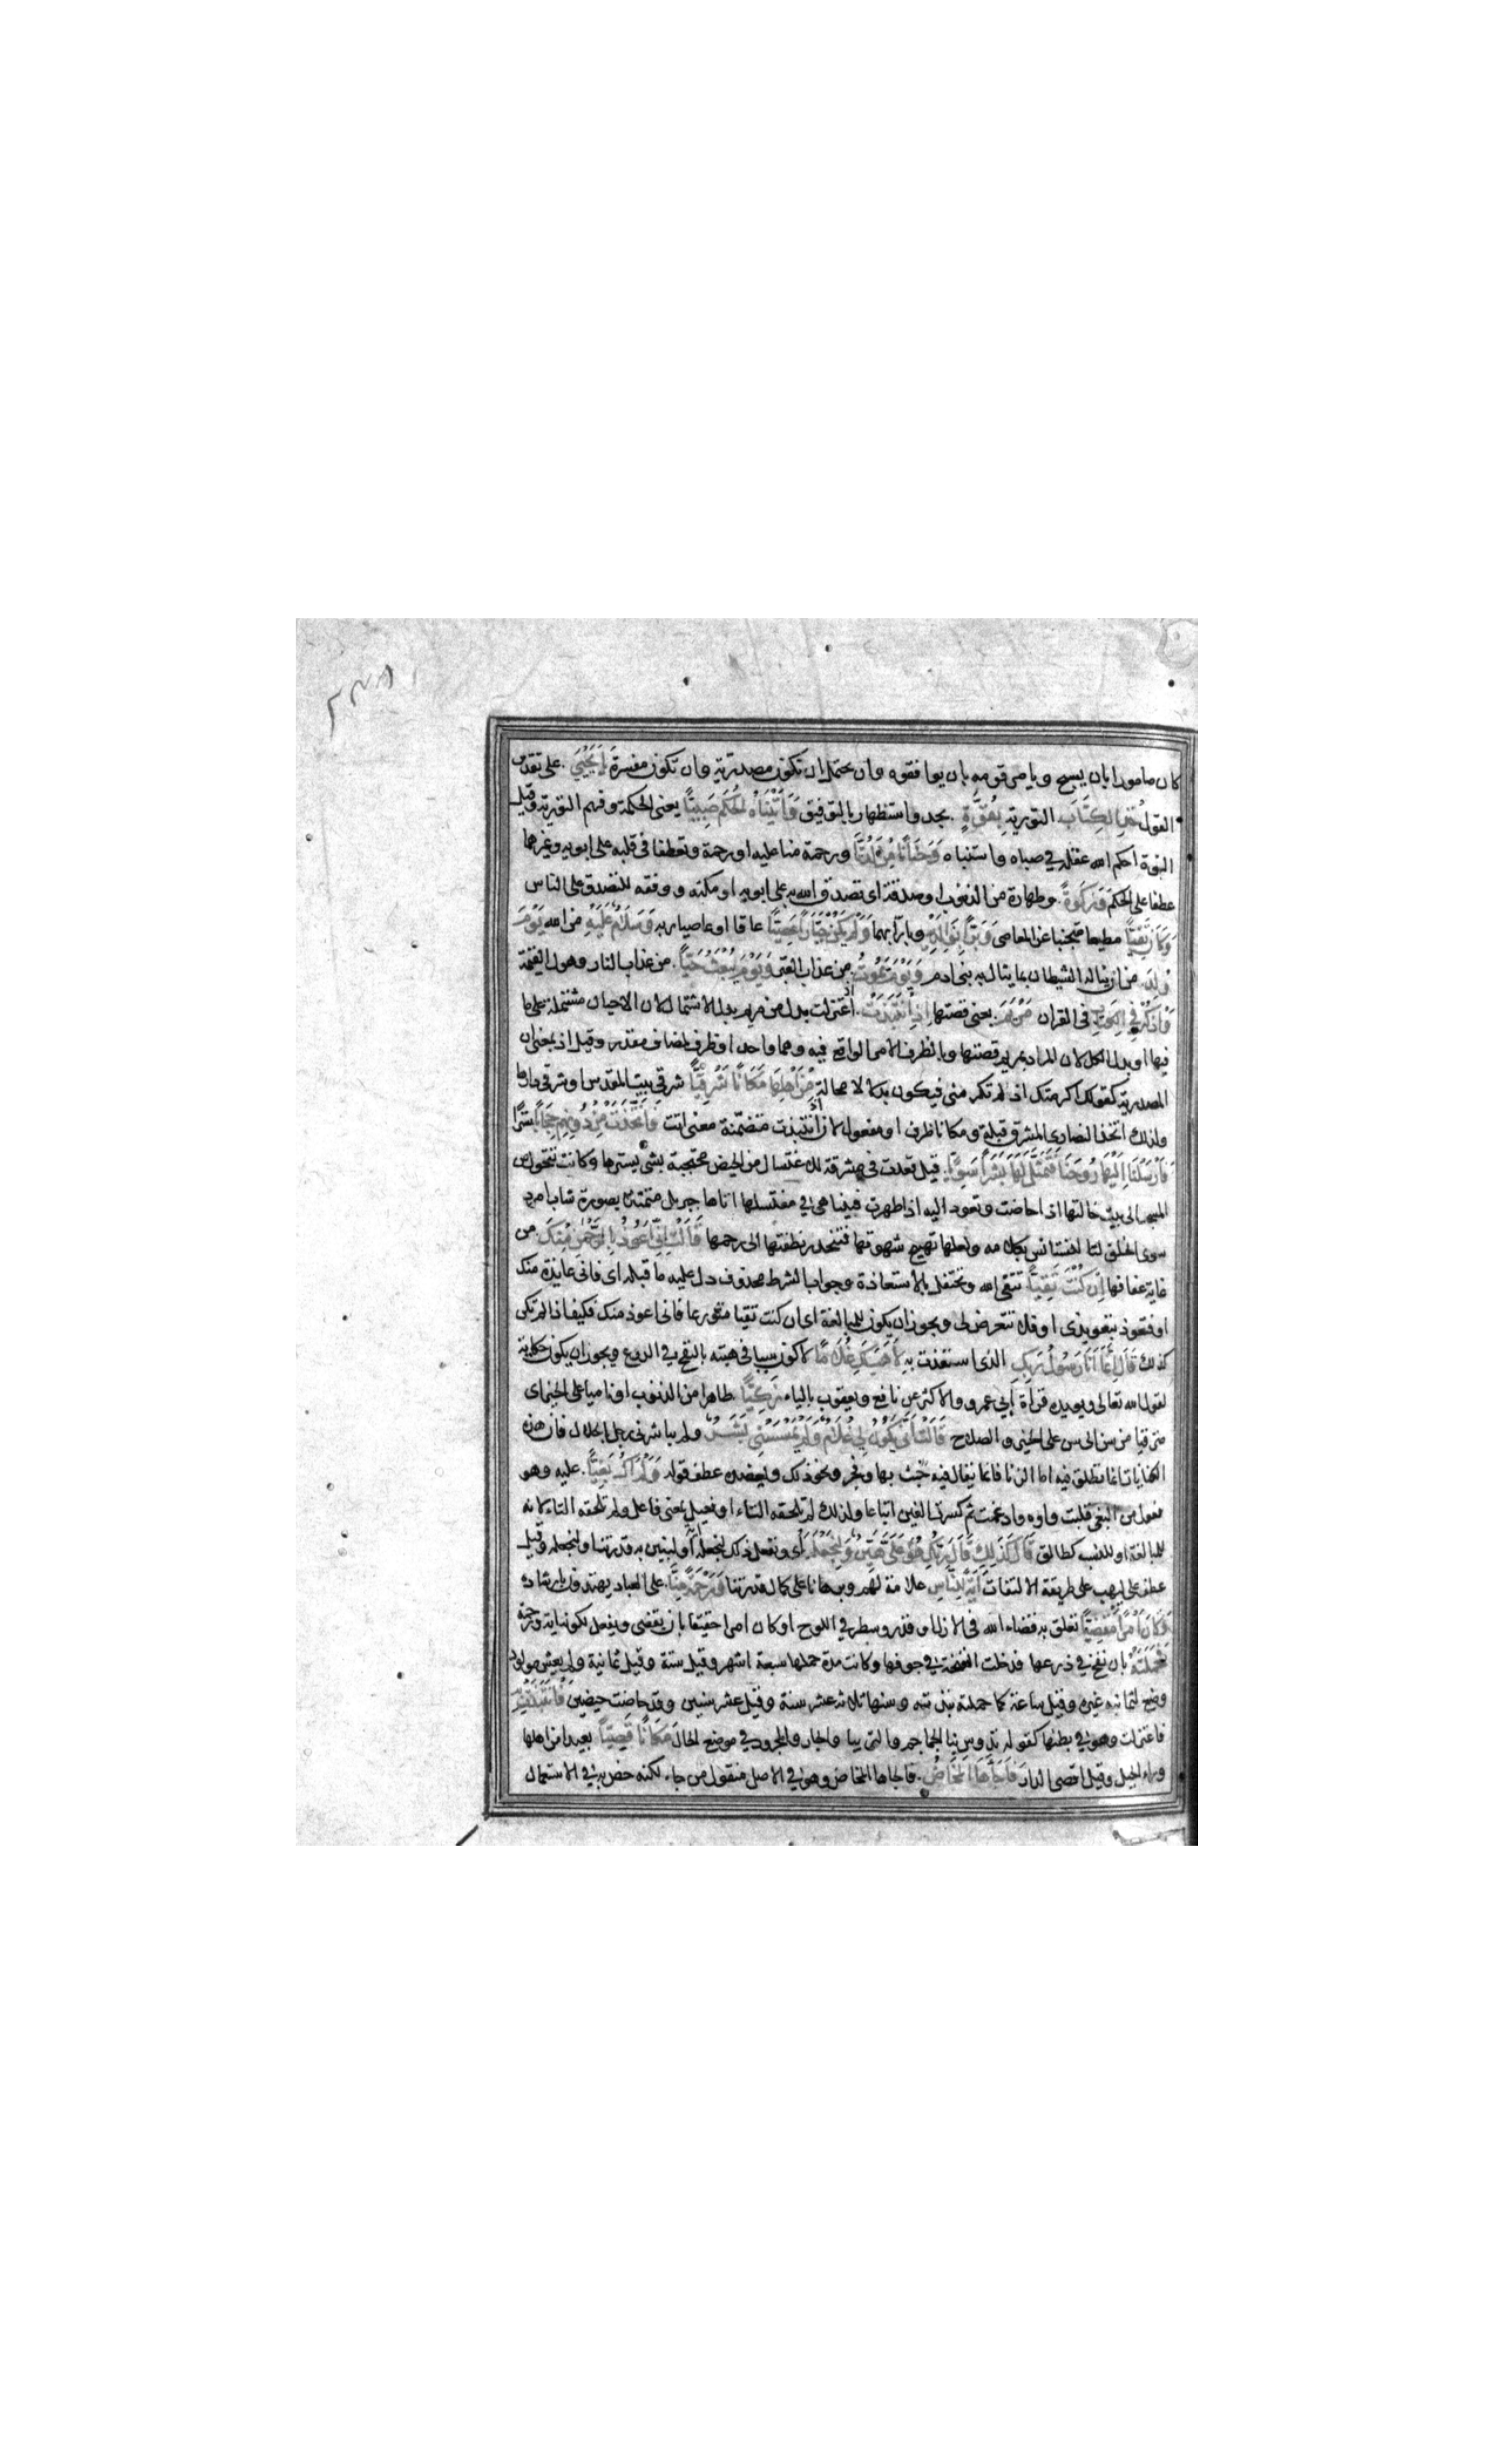 كان مامورا بان يسبح ويامر قومه بان يوافقوه وان يحتمل ان تكون مصدرية وان تكون مفسرة يا يحيى على تقدير
القول خذ الكتاب التورية بقوة بجد واستظهار بالتوفيق واتيناه الحكم صبيا يعنى الحكمة وفهم التورية وقيل
النبوة احكم الله عقله في صباه واستنباه وحنانا من لدنا ورحمة منا عليه او رحمة وتعطفا فى قلبه على ابويه وغيرهما
عطفا على الحكم وزكوة وطهارة من الذنوب او صدقة اى تصدق الله به على ابويه او مكنه ووفقه للتصدق على الناس
وكان تقيا مطيعا متجنبا عن المعاصى وبرا بوالديه وبارا بهما ولم يكن جبارا عصيا عاقا او عاصيا ربه وسلام عليه من الله يوم
ولد من ان يناله الشيطان بما ينال به بنى ادم ويوم يموت من عذاب القبر ويوم يبعث حيا من عذاب النار وهول القيمة
واذكر في الكتاب فى القران مريم يعنى قصتها اذ انتبذت اعتزلت بدل من مريم بدل الاشتمال لان الاحيان مشتملة على ما
فيها او بدل الكل لان المراد بمريم قصتها وبالظرف الامر الواقع فيه وهما واحد او ظرف لمضاف مقدر وقيل اذ بمعنى ان
المصدرية كقولك اكرمتك اذ لم تكرمنى فيكون بدلا لا محالة من اهلها مكانا شرقيا شرقى بيت المقدس او شرقى دارها
ولذلك اتخذ النصارى المشرق قبلة ومكانا ظرف او مفعول لان انتبذت متضمنة معنى اتت فاتخذت من دونهم حجابا سترا
فارسلنا اليها روحنا فتمثل لها بشرا سويا قيل قعدت فى مشرقة للاغتسال من الحيض محتجبة بشئ يسترها وكانت تتحول من
المسجد الى بيت خالتها اذا حاضت وتعود اليه اذا طهرت فبينا هى في مغتسلها اتاها جبريل متمثلا بصورة شاب امرد
سوى الخلق لتستانس بكلامه ولعلها تهيج شهوتها فتنحدر نطفتها الى رحمها قالت انى اعوذ بالرحمن منك من
غاية عفافها ان كنت تقيا تتقى الله وتحتفل بالاستعاذة وجواب الشرط محذوف دل عليه ما قبله اى فانى عايذة منك
او فتعوذ بتعويذى او فلا تتعرض لى ويجوز ان يكون للمبالغة اى ان كنت تقيا متورعا فانى اعوذ منك فكيف اذا لم تكن
كذلك قال انما انا رسول ربك الذى استعذت به لاهب لك غلاما لاكون سببا فى هبته بالنفخ في الدرع ويجوز ان يكون حكاية
لقول الله تعالى ويويده قراة ابي عمرو والاكثر عن نافع ويعقوب بالياء زكيا طاهرا من الذنوب او ناميا على الخير اى
مترقيا من سن الى سن على الخير والصلاح قالت انى يكون لي غلام ولم يمسسنى بشر ولم يباشرنى رجل بالحلال فان هذه
الكنايات انما تطلق فيه اما الزنا فانما يقال فيه خبث بها وفجر ونحو ذلك ويعضده عطف قوله ولم اك بغيا عليه وهو
فعول من البغى قلبت واوه وادغمت ثم كسرت الغين اتباعا ولذلك لم تلحقه التاء او فعيل بمعنى فاعل ولم تلحقه التاء لانه
للمبالغة او للنسب كطالق قال كذلك قال ربك هو على هين ولنجعله اى ونفعل ذلك لنجعله او لنبين به قدرتنا ولنجعله وقيل
عطف على ليهب على طريقة الالتفات اية للناس علامة لهم وبرهانا على كمال قدرتنا ورحمة منا على العباد يهتدون بارشاده
وكان امرا مقضيا تعلق به قضاء الله فى الازل او قدر وسطر في اللوح او كان امرا حقيقا بان يقضى ويفعل لكونه اية ورحمة
فحملته بان نفخ في درعها فدخلت النفخة في جوفها وكانت مدة حملها سبعة اشهر وقيل ستة وقيل ثمانية ولم يعش مولود
وضع لثمانية غيره وقيل ساعة كما حملته نبذته وسنها ثلاث عشر سنة وقيل عشر سنين وقد حاضت حيضين فانتبذت به
فاعتزلت وهو في بطنها كقوله تدوس بنا الجماجم والتريبا والجار والمجرور في موضع الحال مكانا قصيا بعيدا من اهلها
وراء الجبل وقيل اقصى الدار فاجاءها المخاض فالجاها المخاض وهو في الاصل منقول من جاء لكنه خص به في الاستعمال